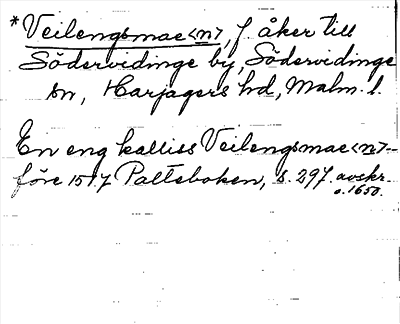 *Veilengsmae<n>, f. åker till
Södervidinge by, Södervidinge
sn, Harjagers hd, Malm. l.
En eng kalliss Veilengsmae<n>--
före 1517 Palteboken, s. 297. avskr.
o. 1650.